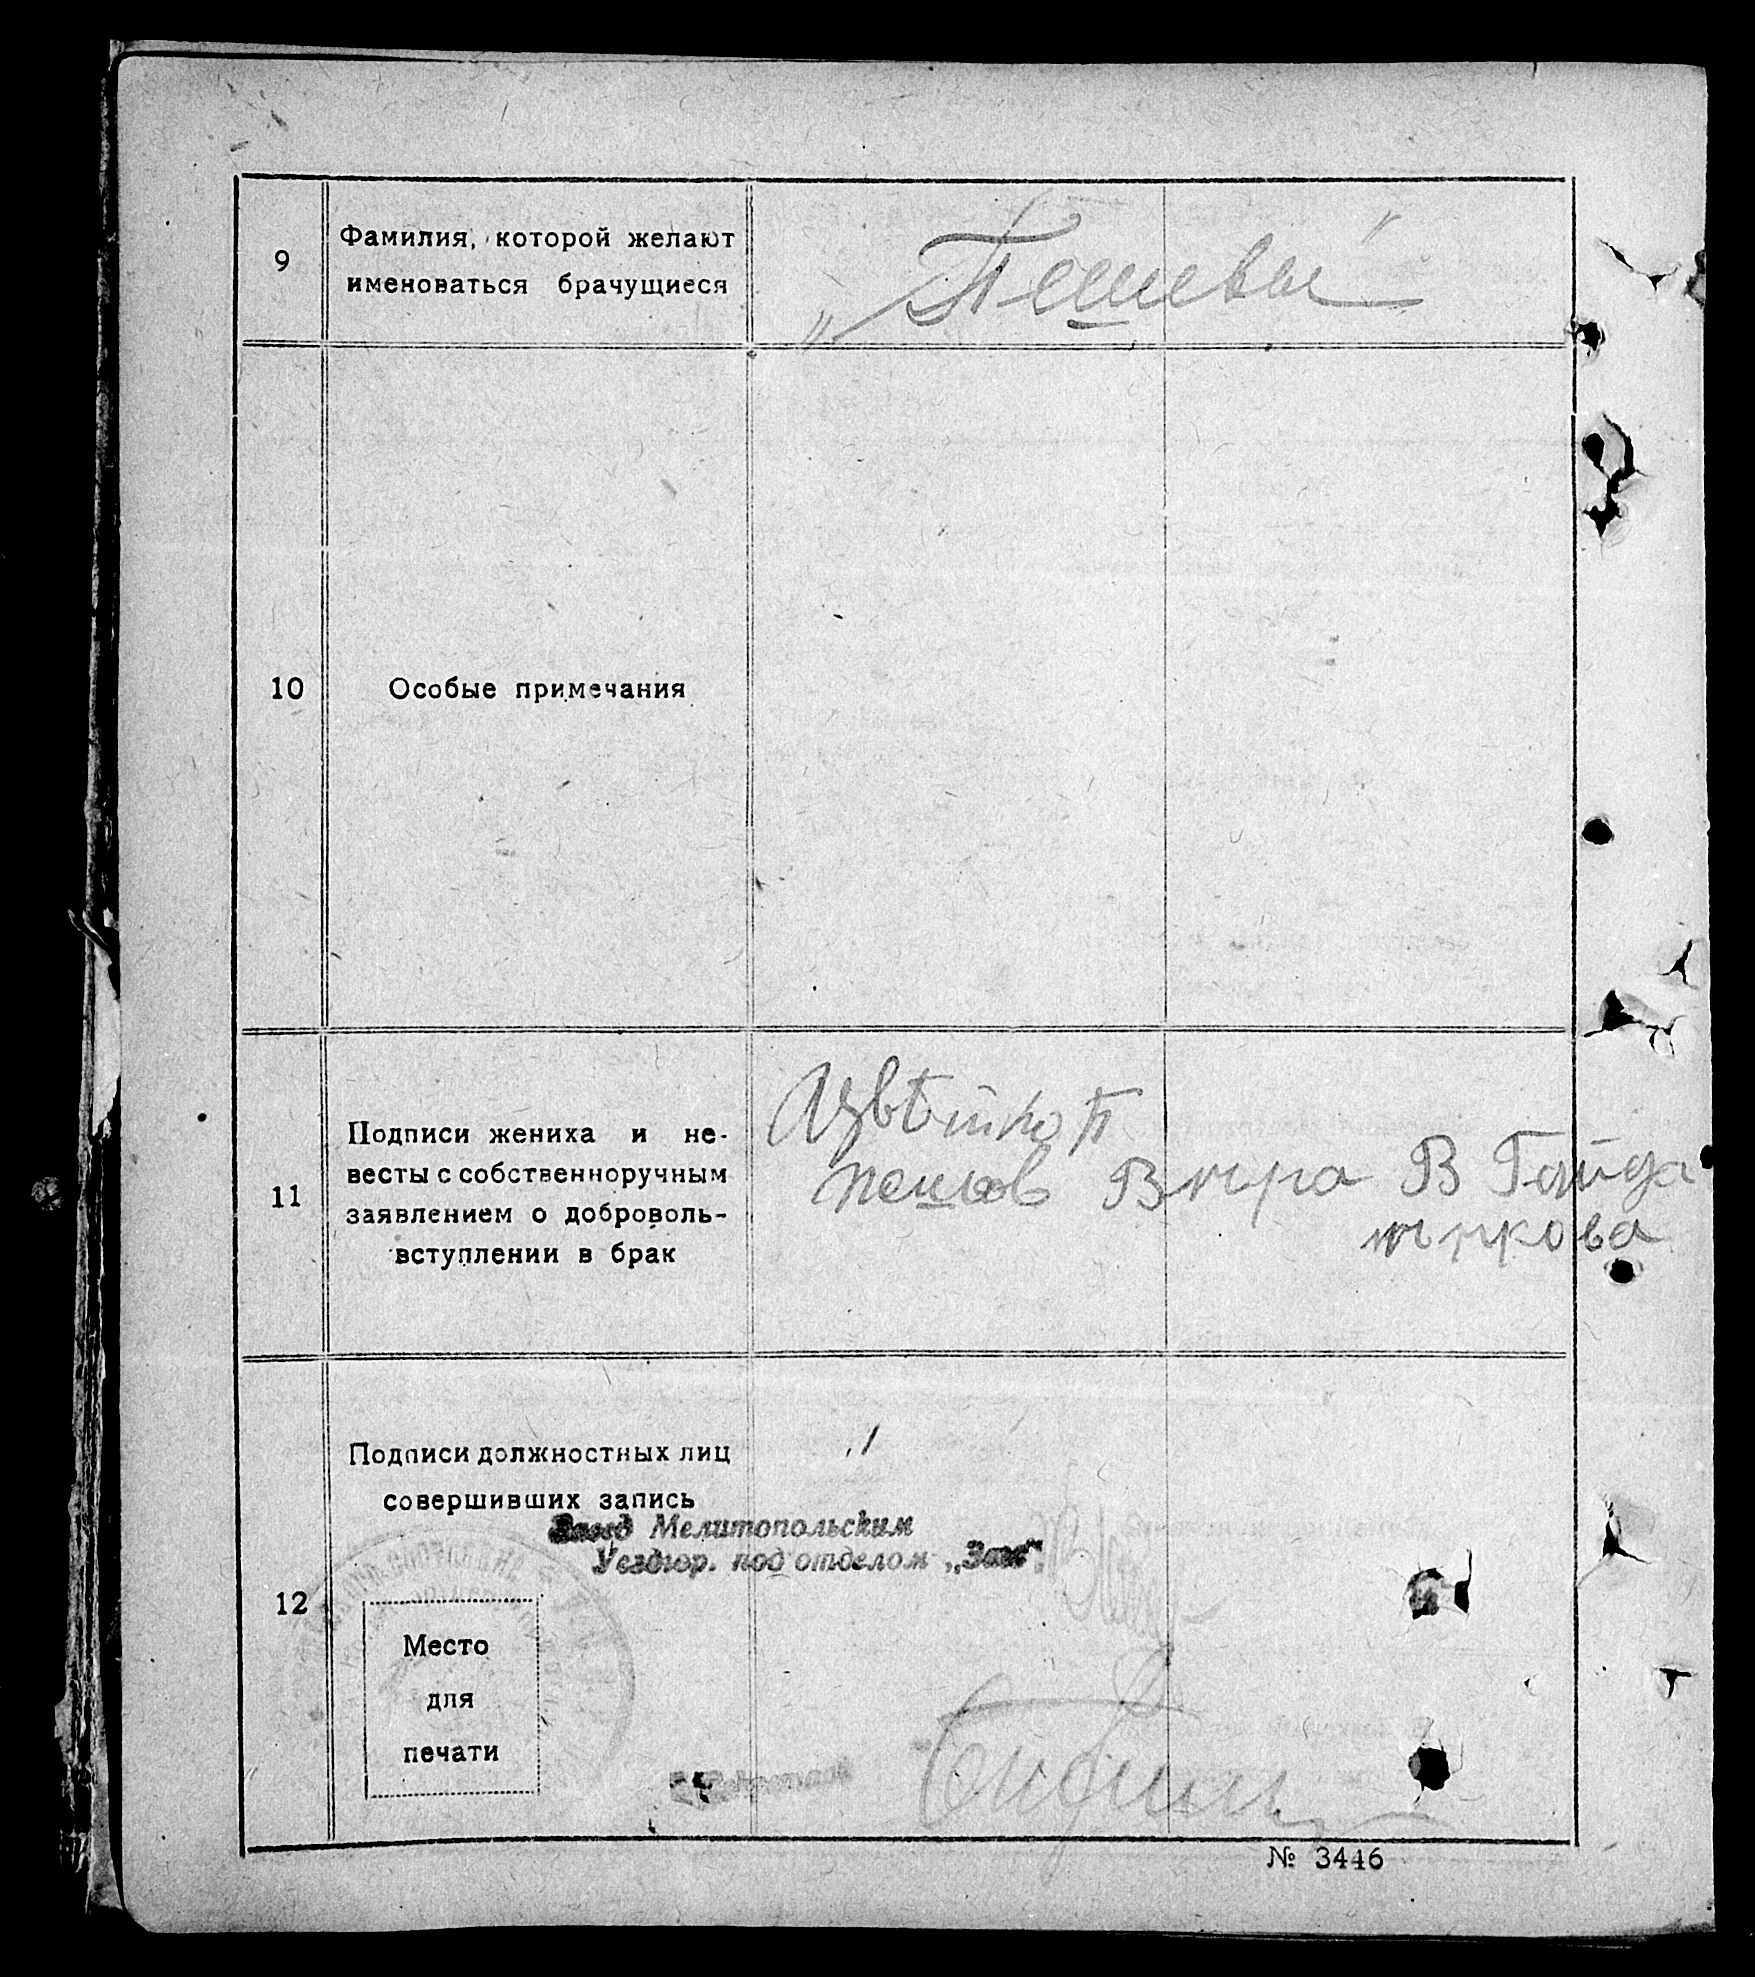 9
Фамилия, которой желают
именоваться брачущиеся
„Пешевы"
10
Особые примечания
11
Подписи жениха и не-
весты с собственноручным
заявлением о доброволь-
вступлении в брак
П
пешов
В Гайда
ркова
Подписи должностных лиц
совершивших запись
Завед Мелитопольским
Уездюр. под отделом „Загс"
12
Место
для
печати
№ 3446